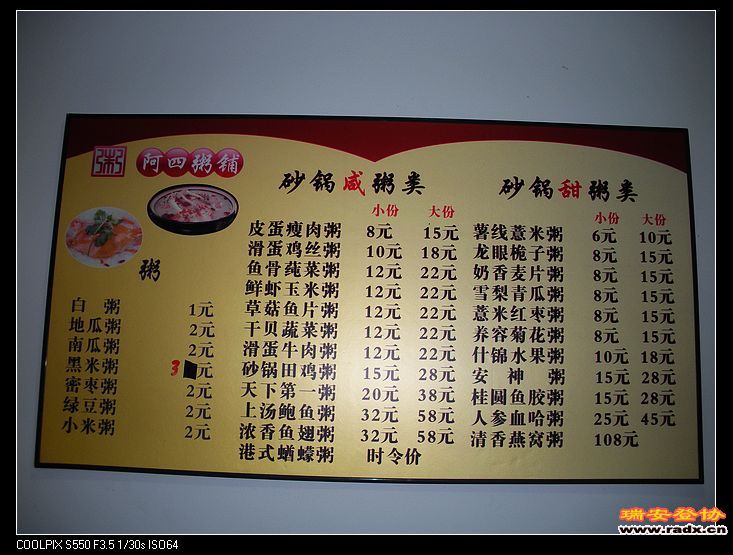 粥
阿四粥铺
粥
白 粥 1元
地瓜粥 2元
南瓜粥 2元
黑米粥 3元
密枣粥 2元
绿豆粥 2元
小米粥 2元
砂锅咸粥类
小份 大份
皮蛋瘦肉粥 8元 15元
滑蛋鸡丝粥 10元 18元
鱼骨莼菜粥 12元 22元
鲜虾玉米粥 12元 22元
草菇鱼片粥 12元 22元
干贝蔬菜粥 12元 22元
滑蛋牛肉粥 12元 22元
砂锅田鸡粥 15元 28元
天下第一粥 20元 38元
上汤鲍鱼粥 32元 58元
浓香鱼翅粥 32元 58元
港式蝤蠓粥 时令价
砂锅甜粥类
小份 大份
薯线薏米粥 6元 10元
龙眼桅子粥 8元 15元
奶香麦片粥 8元 15元
雪梨青瓜粥 8元 15元
薏米红枣粥 8元 15元
养容菊花粥 8元 15元
什锦水果粥 10元 18元
安 神 粥 15元 28元
桂圆鱼胶粥 15元 28元
人参血哈粥 25元 45元
清香燕窝粥 108元
瑞安登协
www.radx.cn
COOLPIX S550 F3.5 1/30s ISO64